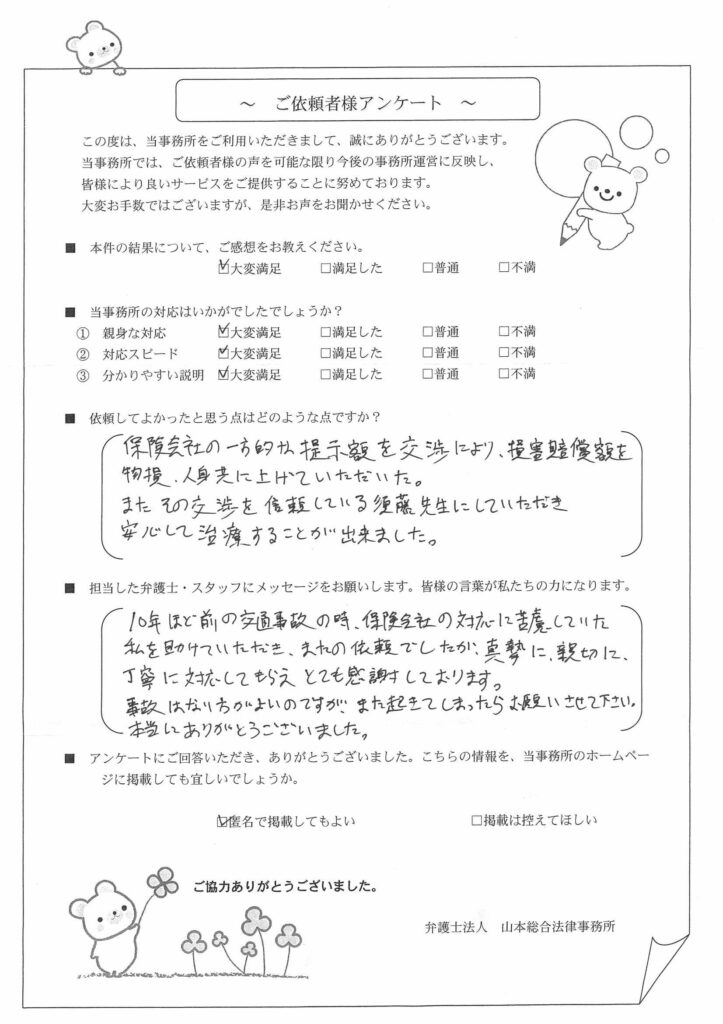 ～ ご依頼者様アンケート ～
この度は、当事務所をご利用いただきまして、誠にありがとうございます。
当事務所では、ご依頼者様の声を可能な限り今後の事務所運営に反映し、
皆様により良いサービスをご提供することに努めております。
大変お手数ではございますが、是非お声をお聞かせください。
■ 本件の結果について、ご感想をお教えください。
☑大変満足 □満足した □普通 □不満
■ 当事務所の対応はいかがでしたでしょうか？
① 親身な対応 ☑大変満足 □満足した □普通 □不満
② 対応スピード ☑大変満足 □満足した □普通 □不満
③ 分かりやすい説明 ☑大変満足 □満足した □普通 □不満
■ 依頼してよかったと思う点はどのような点ですか？
保険会社の一方的な提示額を交渉により、損害賠償額を
物損、人身共に上げていただいた。
またその交渉を信頼している須藤先生にしていただき
安心して治療することが出来ました。
■ 担当した弁護士・スタッフにメッセージをお願いします。皆様の言葉が私たちの力になります。
10年ほど前の交通事故の時、保険会社の対応に苦慮していた
私を助けていただき、またの依頼でしたが、真摯に、親切に、
丁寧に対応してもらえとても感謝しております。
事故はない方がよいのですが、また起きてしまったらお願いさせて下さい。
本当にありがとうございました。
■ アンケートにご回答いただき、ありがとうございました。こちらの情報を、当事務所のホームペー
ジに掲載しても宜しいでしょうか。
☑匿名で掲載してもよい □掲載は控えてほしい
ご協力ありがとうございました。
弁護士法人 山本総合法律事務所